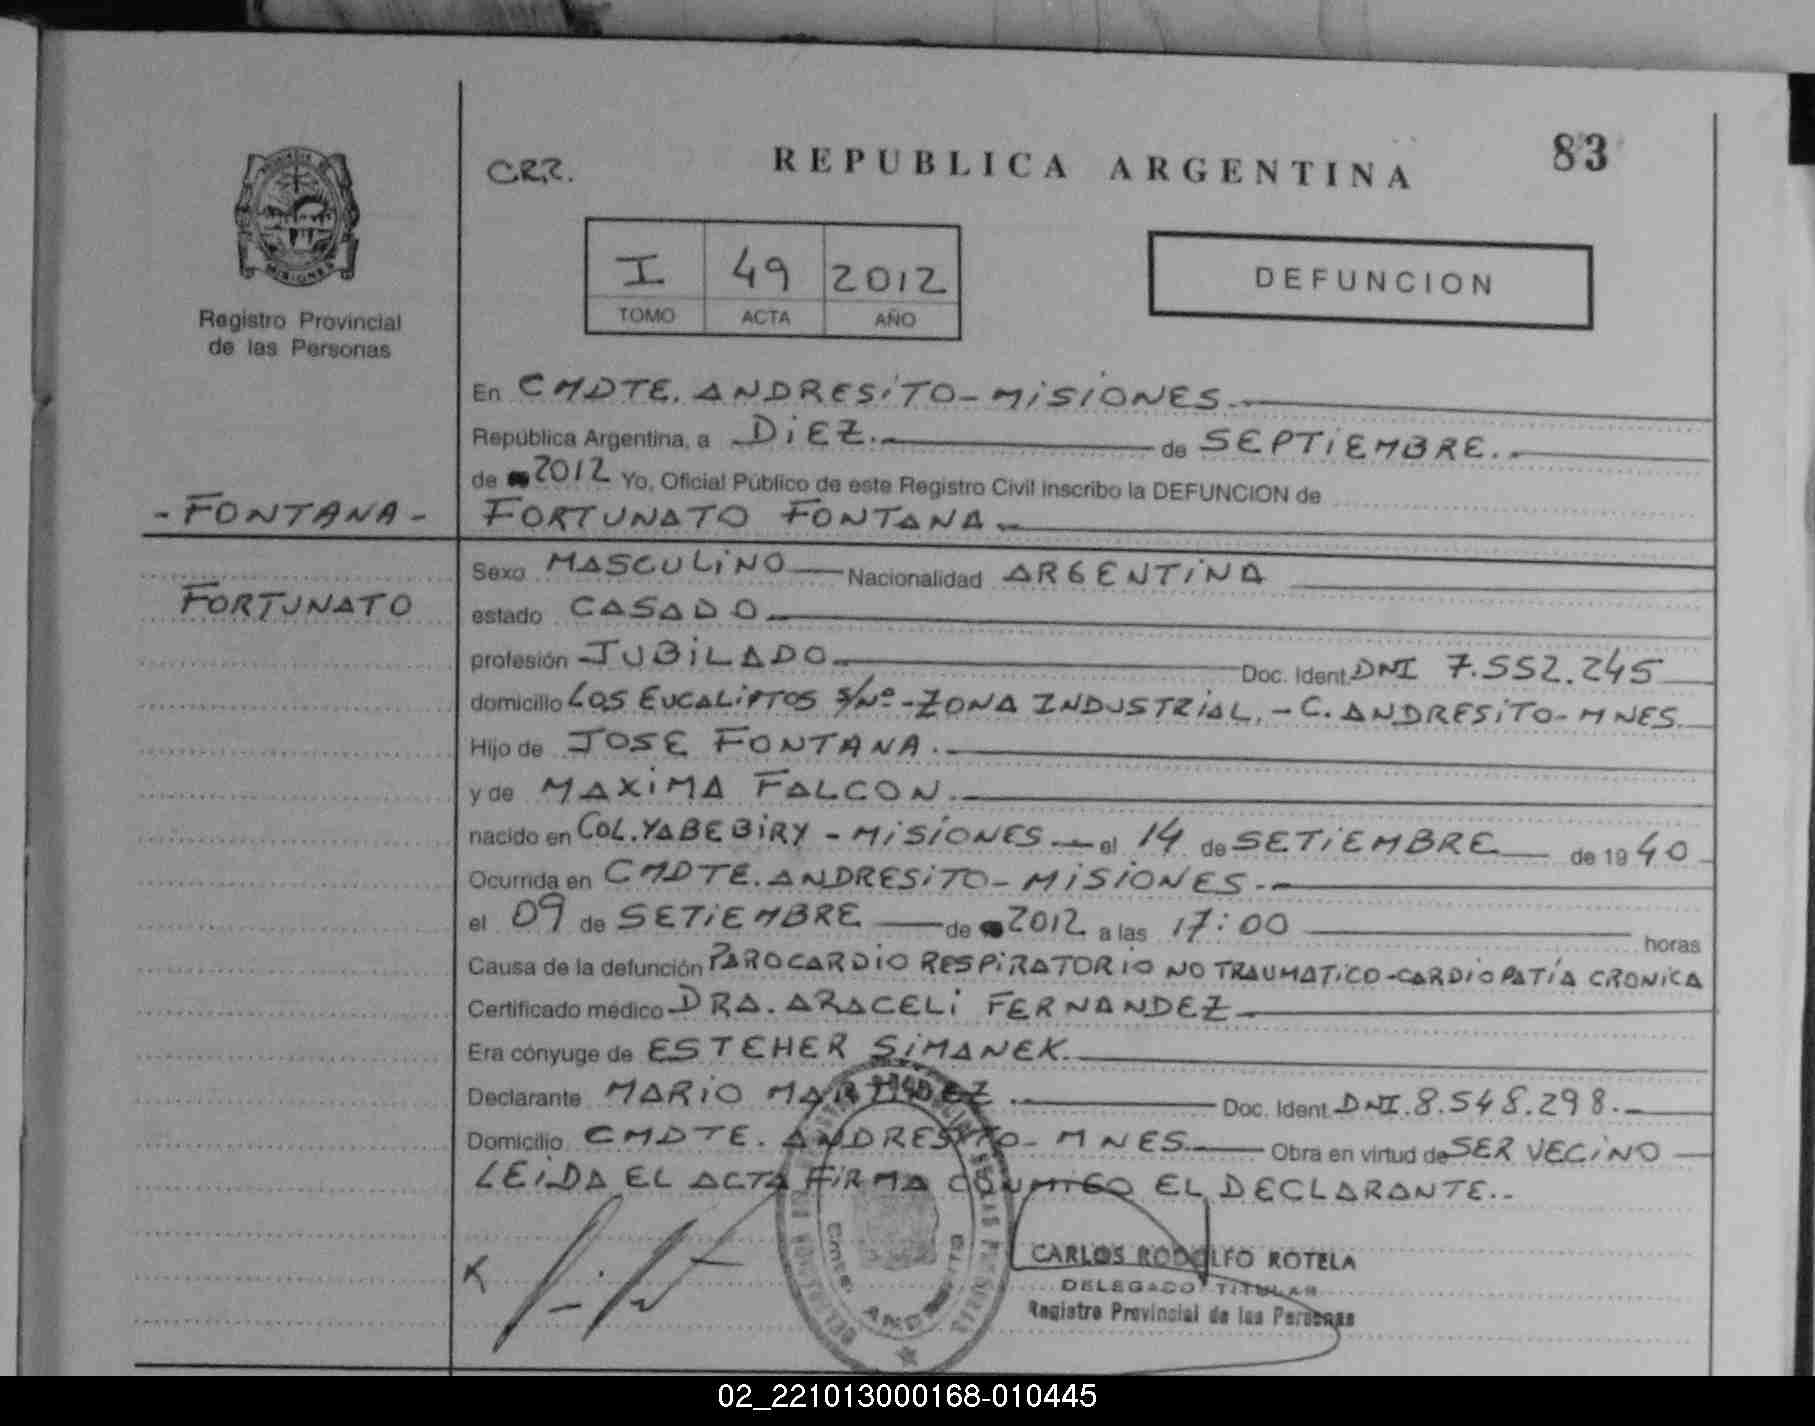 83
C.R.R.
REPUBLICA ARGENTINA
MISIONES
Registro Provincial
de las Personas
I 49 2012
TOMO ACTA AÑO
DEFUNCION
En CMDTE. ANDRESITO - MISIONES.
República Argentina, a DIEZ. de SEPTIEMBRE.
de 2012 Yo, Oficial Público de este Registro Civil inscribo la DEFUNCION de
- FONTANA - FORTUNATO FONTANA
Sexo MASCULINO Nacionalidad ARGENTINA
FORTUNATO
estado CASADO
profesión JUBILADO Doc. Ident. DNI 7.552.245
domicilio LOS EUCALIPTOS S/Nº - ZONA INDUSTRIAL. - C. ANDRESITO - MNES.
Hijo de JOSE FONTANA.
y de MAXIMA FALCON.
nacido en COL. YABEBIRY - MISIONES el 14 de SETIEMBRE de 1940
Ocurrida en CMDTE. ANDRESITO - MISIONES.
el 09 de SETIEMBRE de 2012 a las 17:00 horas
Causa de la defunción PAROCARDIO RESPIRATORIO NO TRAUMATICO - CARDIOPATÍA CRONICA
Certificado médico DRA. ARACELI FERNANDEZ
Era cónyuge de ESTEHER SIMANEK.
Declarante MARIO MARTINEZ Doc. Ident. DNI. 8.548.298.
Domicilio CMDTE. ANDRESITO - MNES. Obra en virtud de SER VECINO
LEIDA EL ACTA FIRMA CONMIGO EL DECLARANTE..
CARLOS RODOLFO ROTELA
DELEGADO TITULAR
Registro Provincial de las Personas
02_221013000168-010445